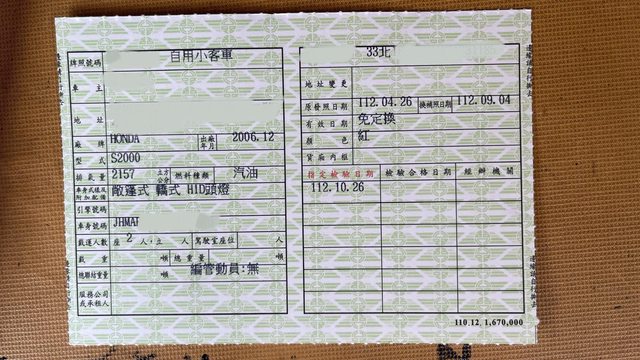 牌照號碼 自用小客車
車主
地址
廠牌 HONDA 出廠年月 2006.12
型式 S2000
排氣量 2157 立方公分 燃料種類 汽油
車身式樣及附加配備 敞篷式 轎式 HID頭燈
引擎號碼
車身號碼 JHMAP
載運人數 座 2 人,立 人 駕駛室座位 人
載重 噸 總重量 噸
總聯結重量 噸 編管動員:無
服務公司或承租人
33北
地址變更
原發照日期 112.04.26 換補照日期 112.09.04
有效日期 免定換
顏色 紅
貨廂內框
指定檢驗日期 檢驗合格日期 經辦機關
112.10.26
110.12. 1,670,000